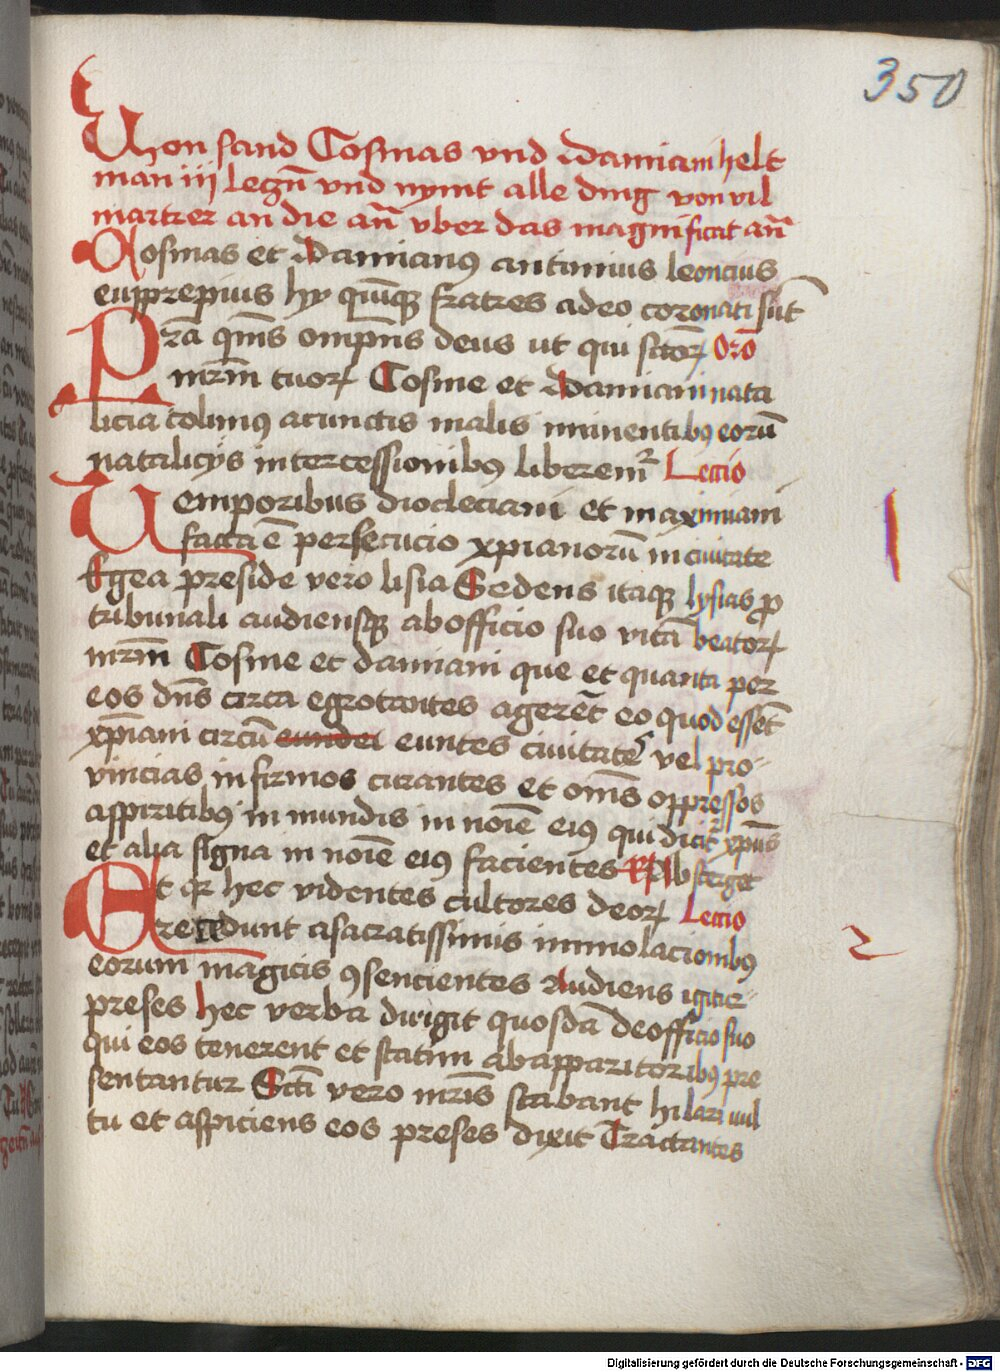 350
Von sand Cosmas vnd Damiani helt
man iij leczn̄ vnd nymt alle ding von vil
martrer an die an̄ vber das magnificat an̄
Cosmas et Damianꝯ antimius leoncius
eupprepius hy quīqꝫ fratres adeo coronati sūt
Pra q̄ms ompn̄s deus ut qui sctoꝝ Oro
mr̄m tuoꝝ Cosme et Damiani nata
licia colimꝯ acunctis malis iminentibꝯ eorū
natalicijs intercessionibꝯ liberemr̄ Leccio
Temporibus diocleciani et maximiani
facta ē persecucio xpianorū in ciuitate
Egea preside vero lisia Sedens itaqꝫ lysias ꝓ
tribunali audiensqꝫ ab officio suo vitā beatoꝝ
mr̄m Cosme et damiani que et quanta per
eos dn̄s circa egrotantes agerēt eo quod essēt
xp̄iani circū eundei euntes ciuitatē vel pro-
vincias infirmos curantes et om̄s oppressos
aspiritibꝯ in mundis in noīe eiꝯ qui dicit̄ xpūs
et alia signa in noīe eiꝯ facientes R Absterget
Et qꝛ hec videntes cultores deoꝝ Leccio
recedunt a sacratissimis immolacionibꝯ
eorum magicis ꝯsencientes Audiens igitur-
preses hec verba dirigit quosdā de officio suo
qui eos tenerent et statim ab apparitoribꝯ pre
sentantur Sctī vero mr̄is stabant hilari vul
tu et aspiciens eos preses dixit Tractantes
2
Digitalisierung gefördert durch die Deutsche Forschungsgemeinschaft - DFG